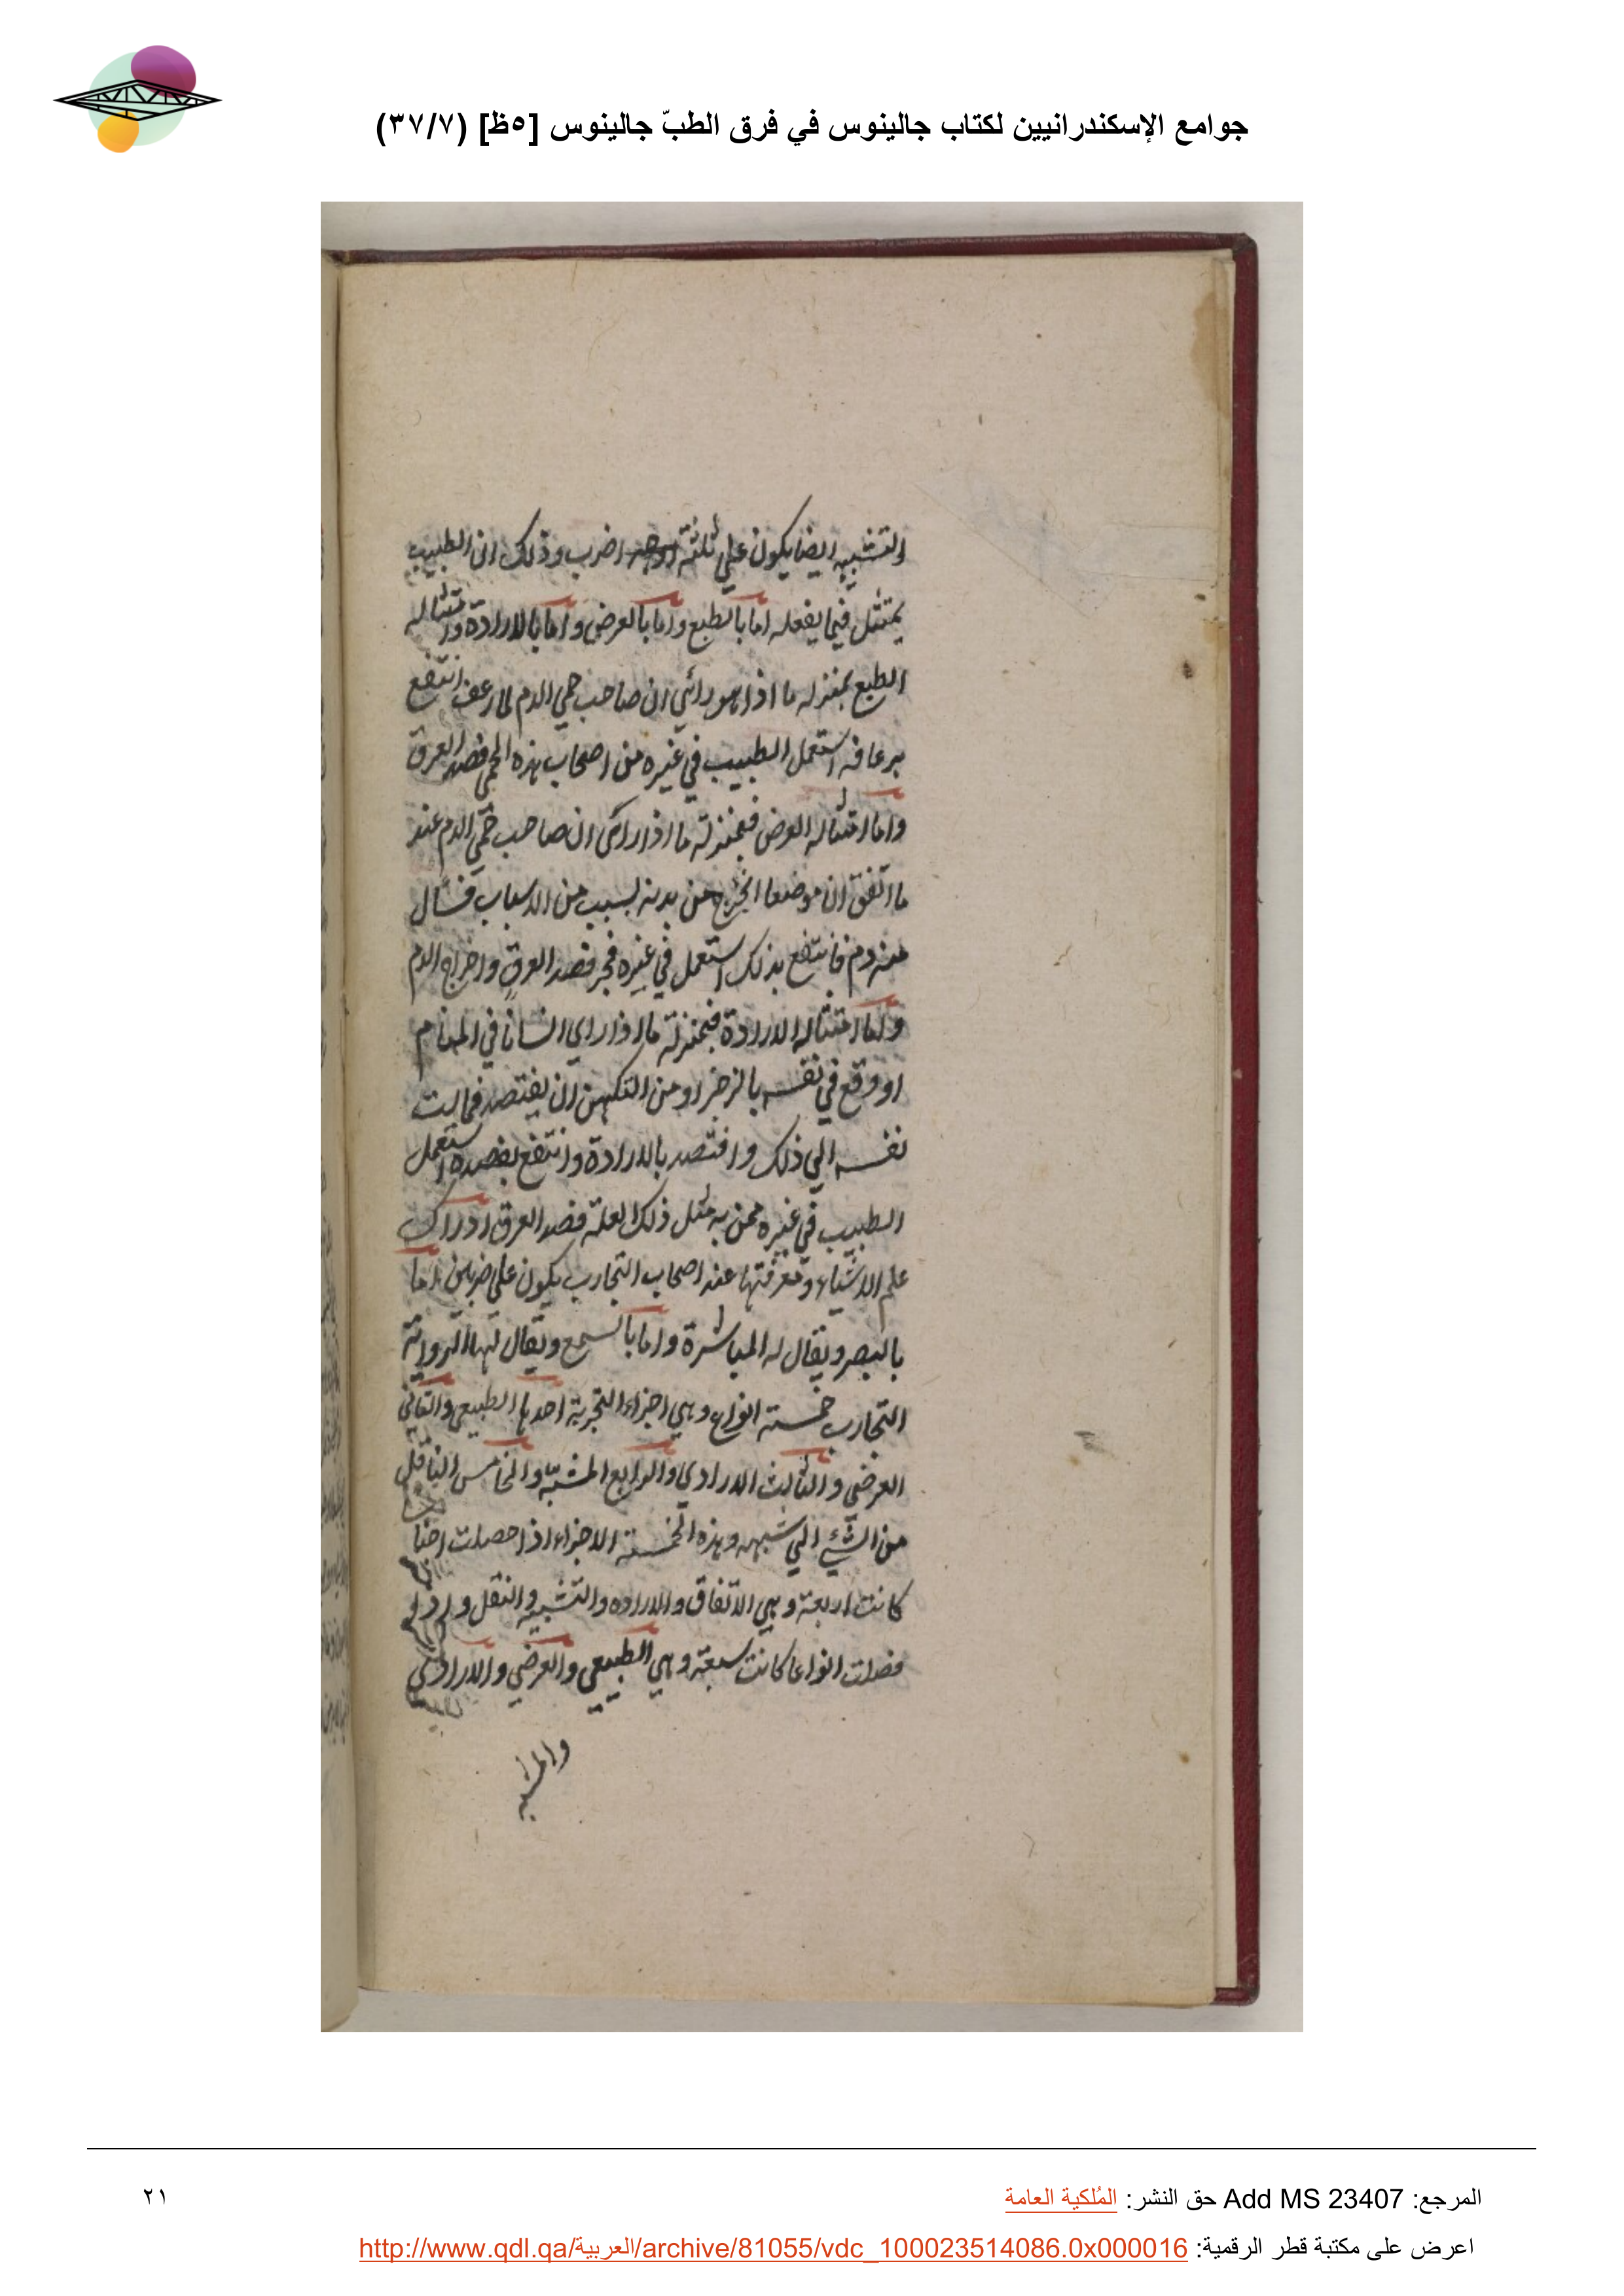 جوامع الإسكندرانيين لكتاب جالينوس في فرق الطبّ جالينوس [٥ظ] (٣٧/٧)
التشبيه ايضا يكون علي ثلثة اوجه اضرب وذلك ان الطبيب
يمتثل فيما يفعله اما بالطبع واما بالعرض واما بالارادة وامتثاله
الطبع بمنزله ما اذا هو رائي ان صاحب حمي الدم لما رعف انتفع
برعافه استعمل الطبيب في غيره من اصحاب هذه الحمي فصد العرق
واما امتثاله العرض فبمنزلة ما اذا رائ ان صاحب حمي الدم عند
ما اتفق ان موضعا انجرح من بدنه بسبب من الاسباب فسال
منه دم فانتفع بذلك استعمل في غيره فجر فصد العرق واخراج الدم
واما امتثاله الارادة فبمنزلة ما اذا راي انسانا في المنام
او وقع في نفسه بالزجر او من التكهن ان يفتصد فمالت
نفسه الي ذلك وافتصد بالارادة وانتفع بفصده استعمل
الطبيب في غيره ممن به مثل ذلك العلة فصد العرق ادراك
علم الاشياء ومعرفتها عند اصحاب التجارب يكون علي ضربين اما
بالبصر ويقال له المباشرة واما بالسمع ويقال لها الرواية
التجارب خمسة انواع وهي اجزاء التجربة احدها الطبيعي والثاني
العرضي والثالث الارادي والرابع المشبه والخامس الناقل
من الشئ الي شبهه وهذه الخمسة الاجزاء اذا حصلت اجنا
كانت اربعة وهي الاتفاق والارادة والتشبيه والنقل واذا
فصلت انواعا كانت سبعة وهي الطبيعي والعرضي والارادي
والمشبه
المرجع: Add MS 23407 حق النشر: المُلكية العامة
٢١
اعرض على مكتبة قطر الرقمية: http://www.qdl.qa/العربية/archive/81055/vdc_100023514086.0x000016